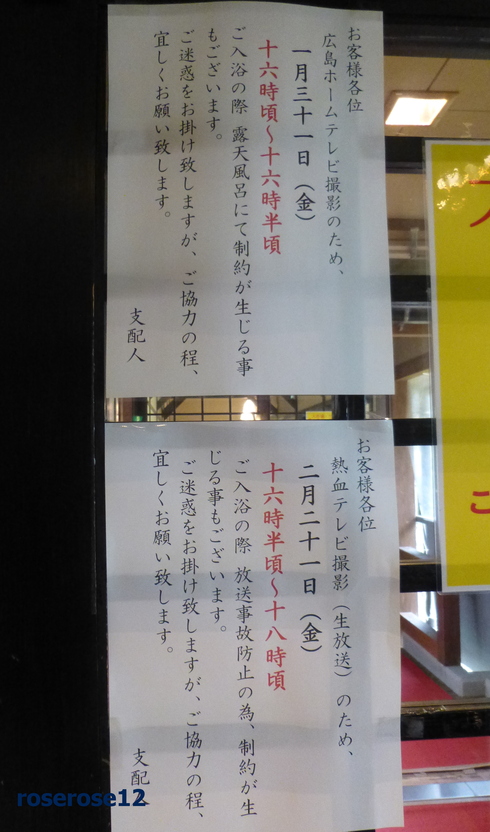 お客様各位
広島ホームテレビ撮影のため、
一月三十一日（金）
十六時頃～十六時半頃
ご入浴の際 露天風呂にて制約が生じる事
もございます。
ご迷惑をお掛け致しますが、ご協力の程、
宜しくお願い致します。
支配人
お客様各位
熱血テレビ撮影（生放送）のため、
二月二十一日（金）
十六時半頃～十八時頃
ご入浴の際 放送事故防止の為、制約が生
じる事もございます。
ご迷惑をお掛け致しますが、ご協力の程、
宜しくお願い致します。
支配人
roserose12